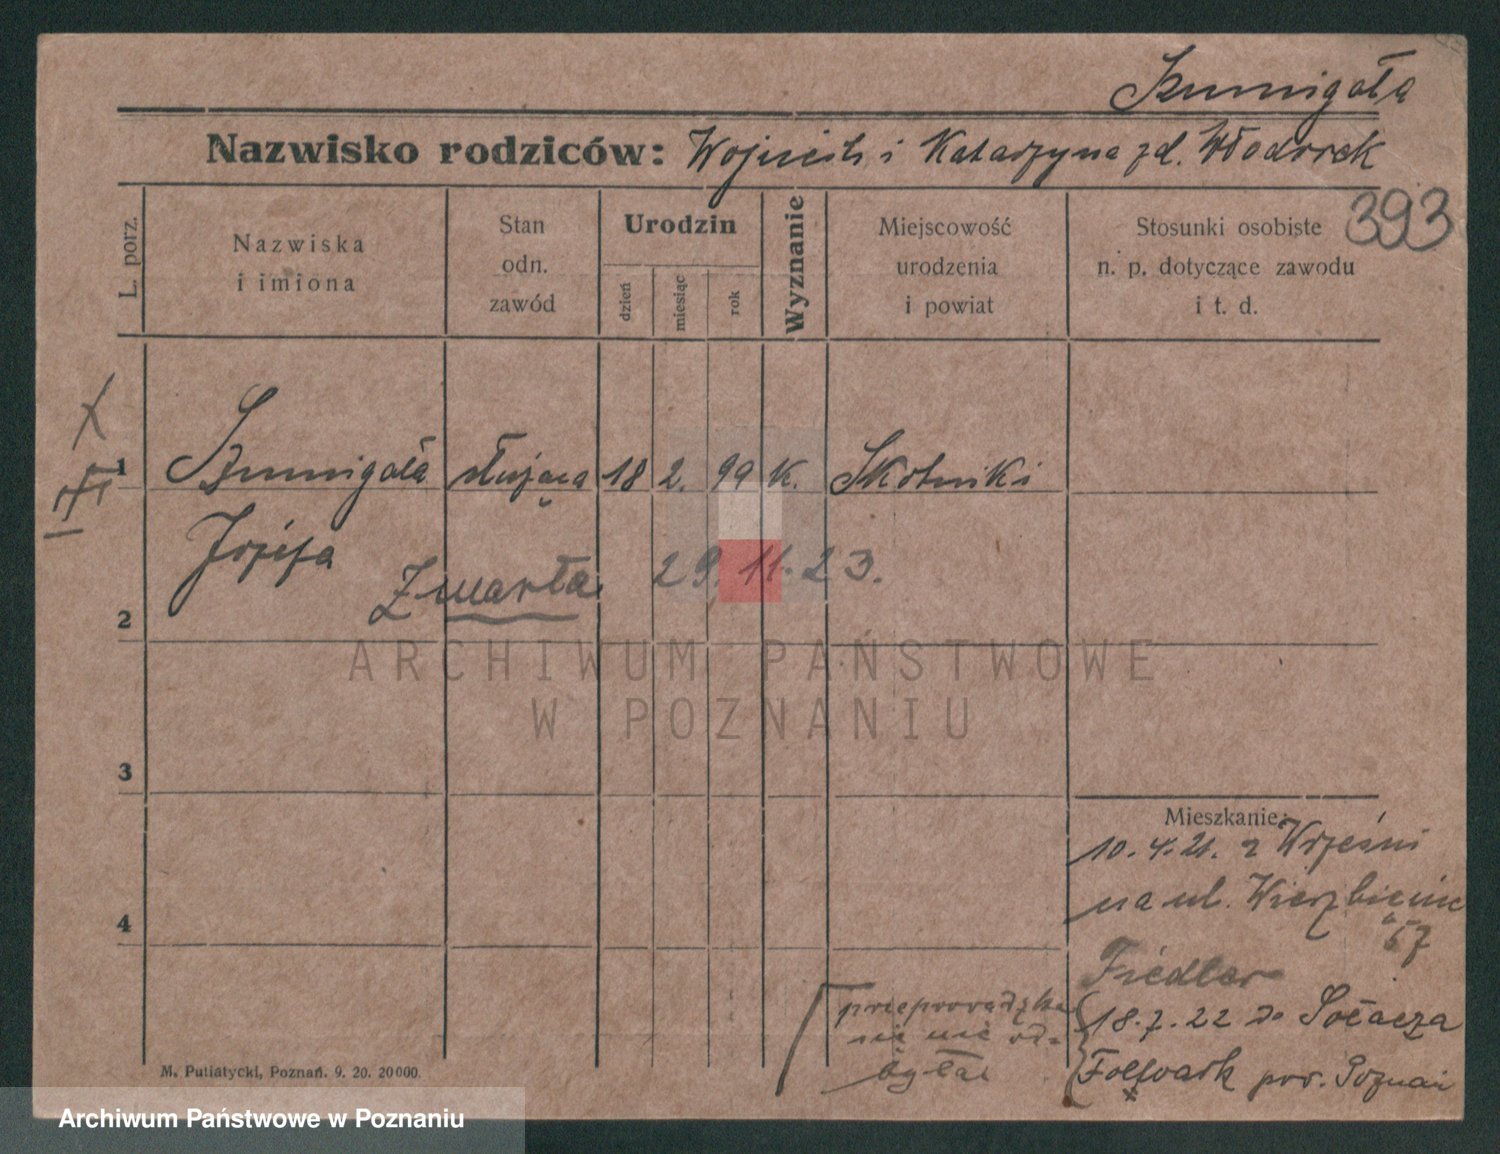 Szumigała
Nazwisko rodziców: Wojciech i Katarzyna zd. Włodarek
393
L. porz.
Nazwiska
i imiona
Stan
odn.
zawód
Urodzin
dzień
miesiąc
rok
Wyznanie
Miejscowość
urodzenia
i powiat
Stosunki osobiste
n. p. dotyczące zawodu
i t. d.
1 Szumigała służąca 18 2. 99 K. Skotniki
Józefa
Zmarła 29. 11. 23.
2
ARCHIWUM PAŃSTWOWE
W POZNANIU
3
Mieszkanie:
10.4.21. z Wrześni
na ul. Wierzbięcic
57
4
Fiedler
przeprowadzka
się nie od=
była
18.7.22 do Sołacza
Folwark pow. Poznań
M. Putiatycki, Poznań. 9. 20. 20000.
Archiwum Państwowe w Poznaniu